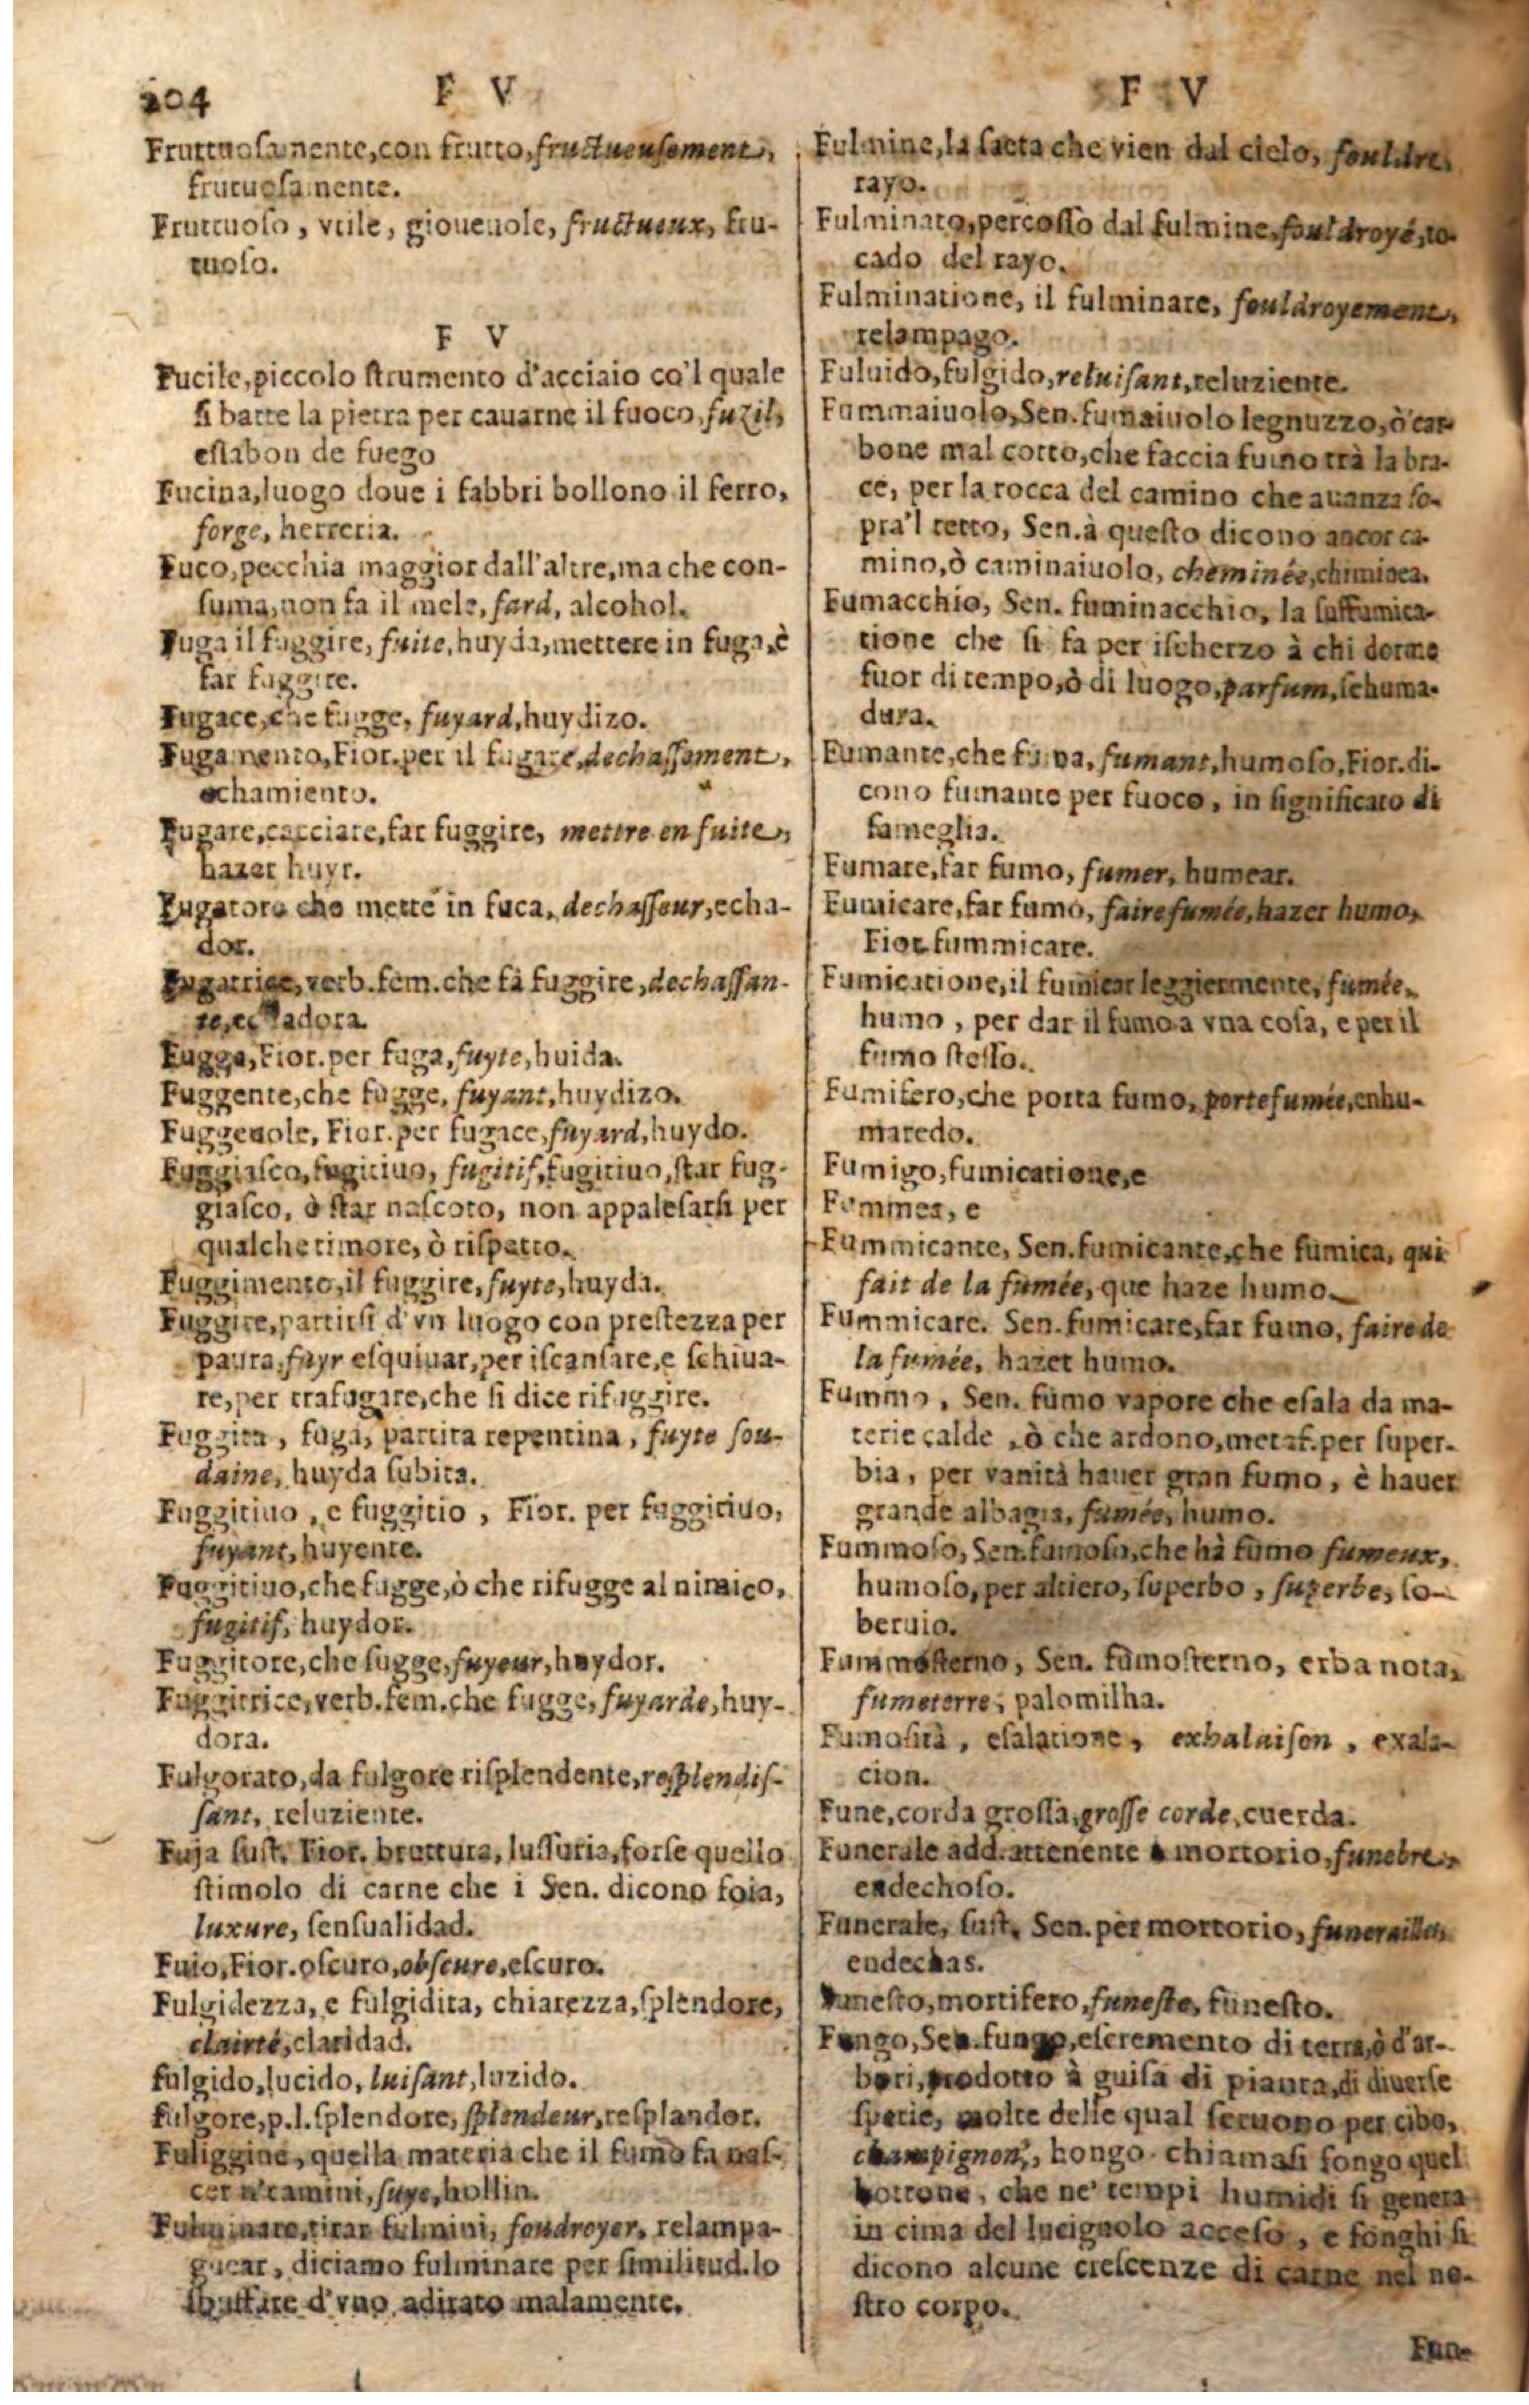 204
F V
Fruttuosamente,con frutto,fructueusement,
frutuosamente.
Fruttuoso, vtile, gioueuole, fructueux, fru-
tuoso.
F V
Fucile,piccolo strumento d'acciaio co'l quale
si batte la pietra per cauarne il fuoco,fuzil,
eslabon de fuego
Fucina,luogo doue i fabbri bollono il ferro,
forge, herreria.
Fuco,pecchia maggior dall'altre,ma che con-
suma,non fa il mele, fard, alcohol.
Fuga il fuggire, fuite,huyda,mettere in fuga,è
far fuggire.
Fugace,che fugge, fuyard,huydizo.
Fugamento,Fior.per il fugare,dechassement,
echamiento.
Fugare,cacciare,far fuggire, mettre en fuite,
hazer huyr.
Fugatore che mette in fuca, dechasseur,echa-
dor.
Fugatrice,verb.fem.che fà fuggire,dechassan-
te,echadora
Fugga,Fior.per fuga,fuyte,huida.
Fuggente,che fugge, fuyant,huydizo.
Fuggeuole, Fior.per fugace,fuyard,huydo.
Fuggiasco,fugitiuo, fugitif,fugitiuo,star fug-
giasco, ò star nascoto, non appalesarsi per
qualche timore, ò rispetto.
Fuggimento,il fuggire,fuyte,huyda.
Fuggire,partirsi d'vn luogo con prestezza per
paura,fuyr esquiuar,per iscansare,e schiua-
re,per trafugare,che si dice rifuggire.
Fuggita, fuga, partita repentina, fuyte sou-
daine, huyda subita.
Fuggitiuo, e fuggitio, Fior. per fuggitiuo,
fuyant,huyente.
Fuggitiuo,che fugge,ò che rifugge al nimico,
fugitif, huydor.
Fuggitore,che fugge,fuyeur,huydor.
Fuggitrice,verb.fem.che fugge,fuyarde,huy-
dora.
Fulgorato,da fulgore risplendente,resplendis-
sant, reluziente.
Fuja sust. Fior. bruttura, lussuria,forse quello
stimolo di carne che i Sen. dicono foia,
luxure, sensualidad.
Fuio,Fior.oscuro,obscure,escuro.
Fulgidezza, e fulgidita, chiarezza,splendore,
clairté,claridad.
fulgido,lucido,luisant,luzido.
fulgore,p.l.splendore,splendeur,resplandor.
Fuliggine, quella materia che il fumo fa nas-
cer n'camini,suye,hollin.
Fulminare,tirar fulmini, foudroyer, relampa-
guear, diciamo fulminare per similitud.lo
sbuffare d'vno adirato malamente.
F V
Fulmine,la saetta che vien dal cielo, fouldre,
rayo.
Fulminato,percosso dal fulmine,fouldroyé,to-
cado del rayo.
Fulminatione, il fulminare, fouldroyement,
relampago.
Fuluido,fulgido,reluisant,reluziente.
Fummaiuolo,Sen.fumaiuolo legnuzzo,ò car-
bone mal cotto,che faccia fumo trà la bra-
ce, per la rocca del camino che auanza so-
pra'l tetto, Sen.à questo dicono ancor ca-
mino,ò caminaiuolo, cheminée,chiminea.
Fumacchio, Sen. fuminacchio, la suffumica-
tione che si fa per ischerzo à chi dorme
fuor di tempo,ò di luogo,parfum,sehuma-
dura.
Fumante,che fuma, fumant,humoso,Fior.di-
cono fumante per fuoco, in significato di
fameglia.
Fumare,far fumo, fumer, humear.
Fumicare,far fumo, faire fumée,hazer humo,
Fior.fummicare.
Fumicatione,il fumicar leggiermente, fumée,
humo, per dar il fumo a vna cosa, e per il
fumo stesso.
Fumifero,che porta fumo, porte fumée,enhu-
maredo.
Fumigo,fumicatione,e
Fummea, e
Fummicante, Sen.fumicante,che fumica, qui
fait de la fumée, que haze humo.
Fummicare. Sen.fumicare,far fumo, faire de
la fumée, hazer humo.
Fummo, Sen. fumo vapore che esala da ma-
terie calde, ò che ardono,metaf.per super-
bia, per vanità hauer gran fumo, è hauer
grande albagia, fumée, humo.
Fummoso, Sen.fumoso,che hà fumo fumeux,
humoso,per altiero, superbo, superbe, so-
beruio.
Fummosterno, Sen. fumosterno, erba nota,
fumeterre, palomilha.
Fumosità, esalatione, exhalaison, exala-
cion.
Fune,corda grossa,grosse corde,cuerda.
Funerale add.attenente a mortorio,funebre,
endechoso.
Funerale, sust. Sen.per mortorio, funerailles,
endechas.
Funesto,mortifero,funeste, funesto.
Fungo,Sen.fungo,escremento di terra,ò d'ar-
bori,prodotto à guisa di pianta,di diuerse
spetie, molte delle qual seruono per cibo,
champignon, hongo. chiamasi fongo quel
bottone, che ne' tempi humidi si genera
in cima del lucignolo acceso, e fonghi si
dicono alcune crescenze di carne nel no-
stro corpo.
Fun-